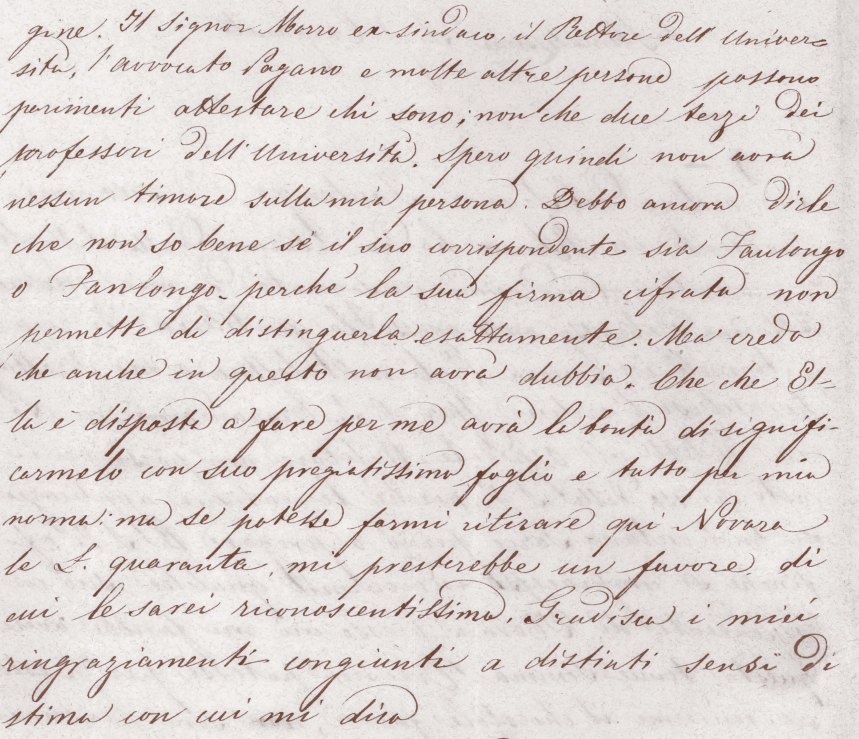 gine. Il Signor Morro ex-sindaco, il Rettore dell'Univer=
sità, l'avvocato Pagano e molte altre persone possono
parimenti attestare chi sono; non che due terzi dei
professori dell'Università. Spero quindi non avrà
nessun timore sulla mia persona. Debbo ancora dirle
che non so bene se il suo corrispondente sia Faulongo
o Fanlongo perché la sua firma cifrata non
permette di distinguerla esattamente. Ma credo
che anche in questo non avrà dubbio. Che che El-
la è disposta a fare per me avrà la bontà di signifi-
carmelo con suo pregiatissimo foglio e tutto per mia
norma: ma se potesse farmi ritirare qui Novara
le L. quaranta, mi presterebbe un favore, di
cui le sarei riconoscentissimo. Gradisca i miei
ringraziamenti congiunti a distinti sensi di
stima con cui mi dico